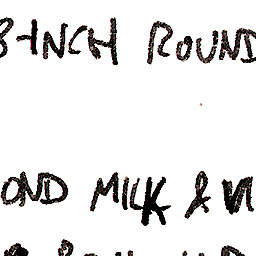 8-INCH ROUND
OND MILK & VI